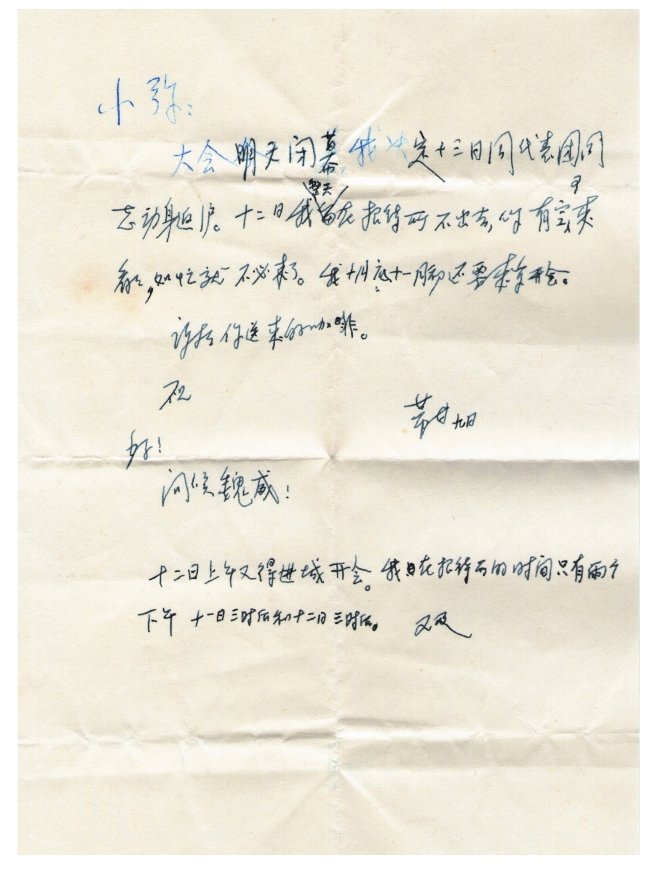 小弥:
大会明天闭幕,我决定十三日同代表团同
志动身返沪。十二日我整天留在招待所不出去,你有空可来
看看,如忙就不必来了。我十月底十一月初还要来京开会。
谢谢你送来的咖啡。
祝
好!
芾甘 九日
问候魏威!
十二日上午又得进城开会。我在招待所的时间只有两个
下午 十一日三时后和十二日三时后。 又及